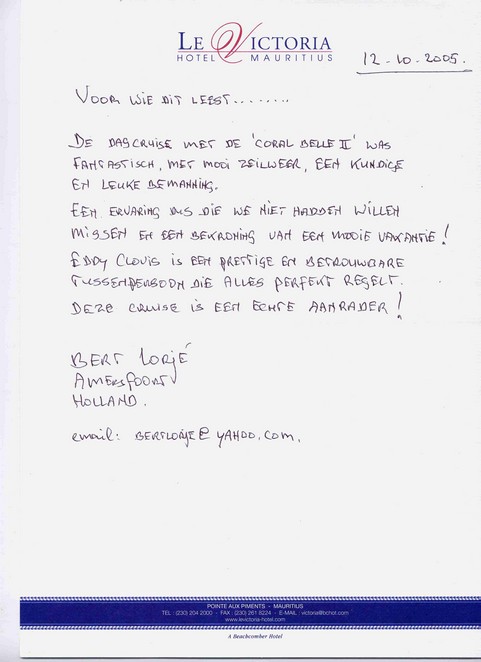 LE VICTORIA
HOTEL MAURITIUS
12-10-2005.
VOOR WIE DIT LEEST........
DE DAGCRUISE MET DE 'CORAL BELLE II' WAS
FANTASTISCH, MET MOOI ZEILWEER, EEN KUNDIGE
EN LEUKE BEMANNING.
EEN ERVARING DUS DIE WE NIET HADDEN WILLEN
MISSEN EN EEN BEKRONING VAN EEN MOOIE VAKANTIE!
EDDY CLOVIS IS EEN PRETTIGE EN BETROUWBARE
TUSSENPERSOON DIE ALLES PERFEKT REGELT.
DEZE CRUISE IS EEN ECHTE AANRADER!
BERT LORJÉ
AMERSFOORT
HOLLAND.
email: BERTLORJE@YAHOO.COM.
POINTE AUX PIMENTS - MAURITIUS
TEL: (230) 204 2000 - FAX : (230) 261 8224 - E-MAIL : victoria@bchot.com
www.levictoria-hotel.com
A Beachcomber Hotel